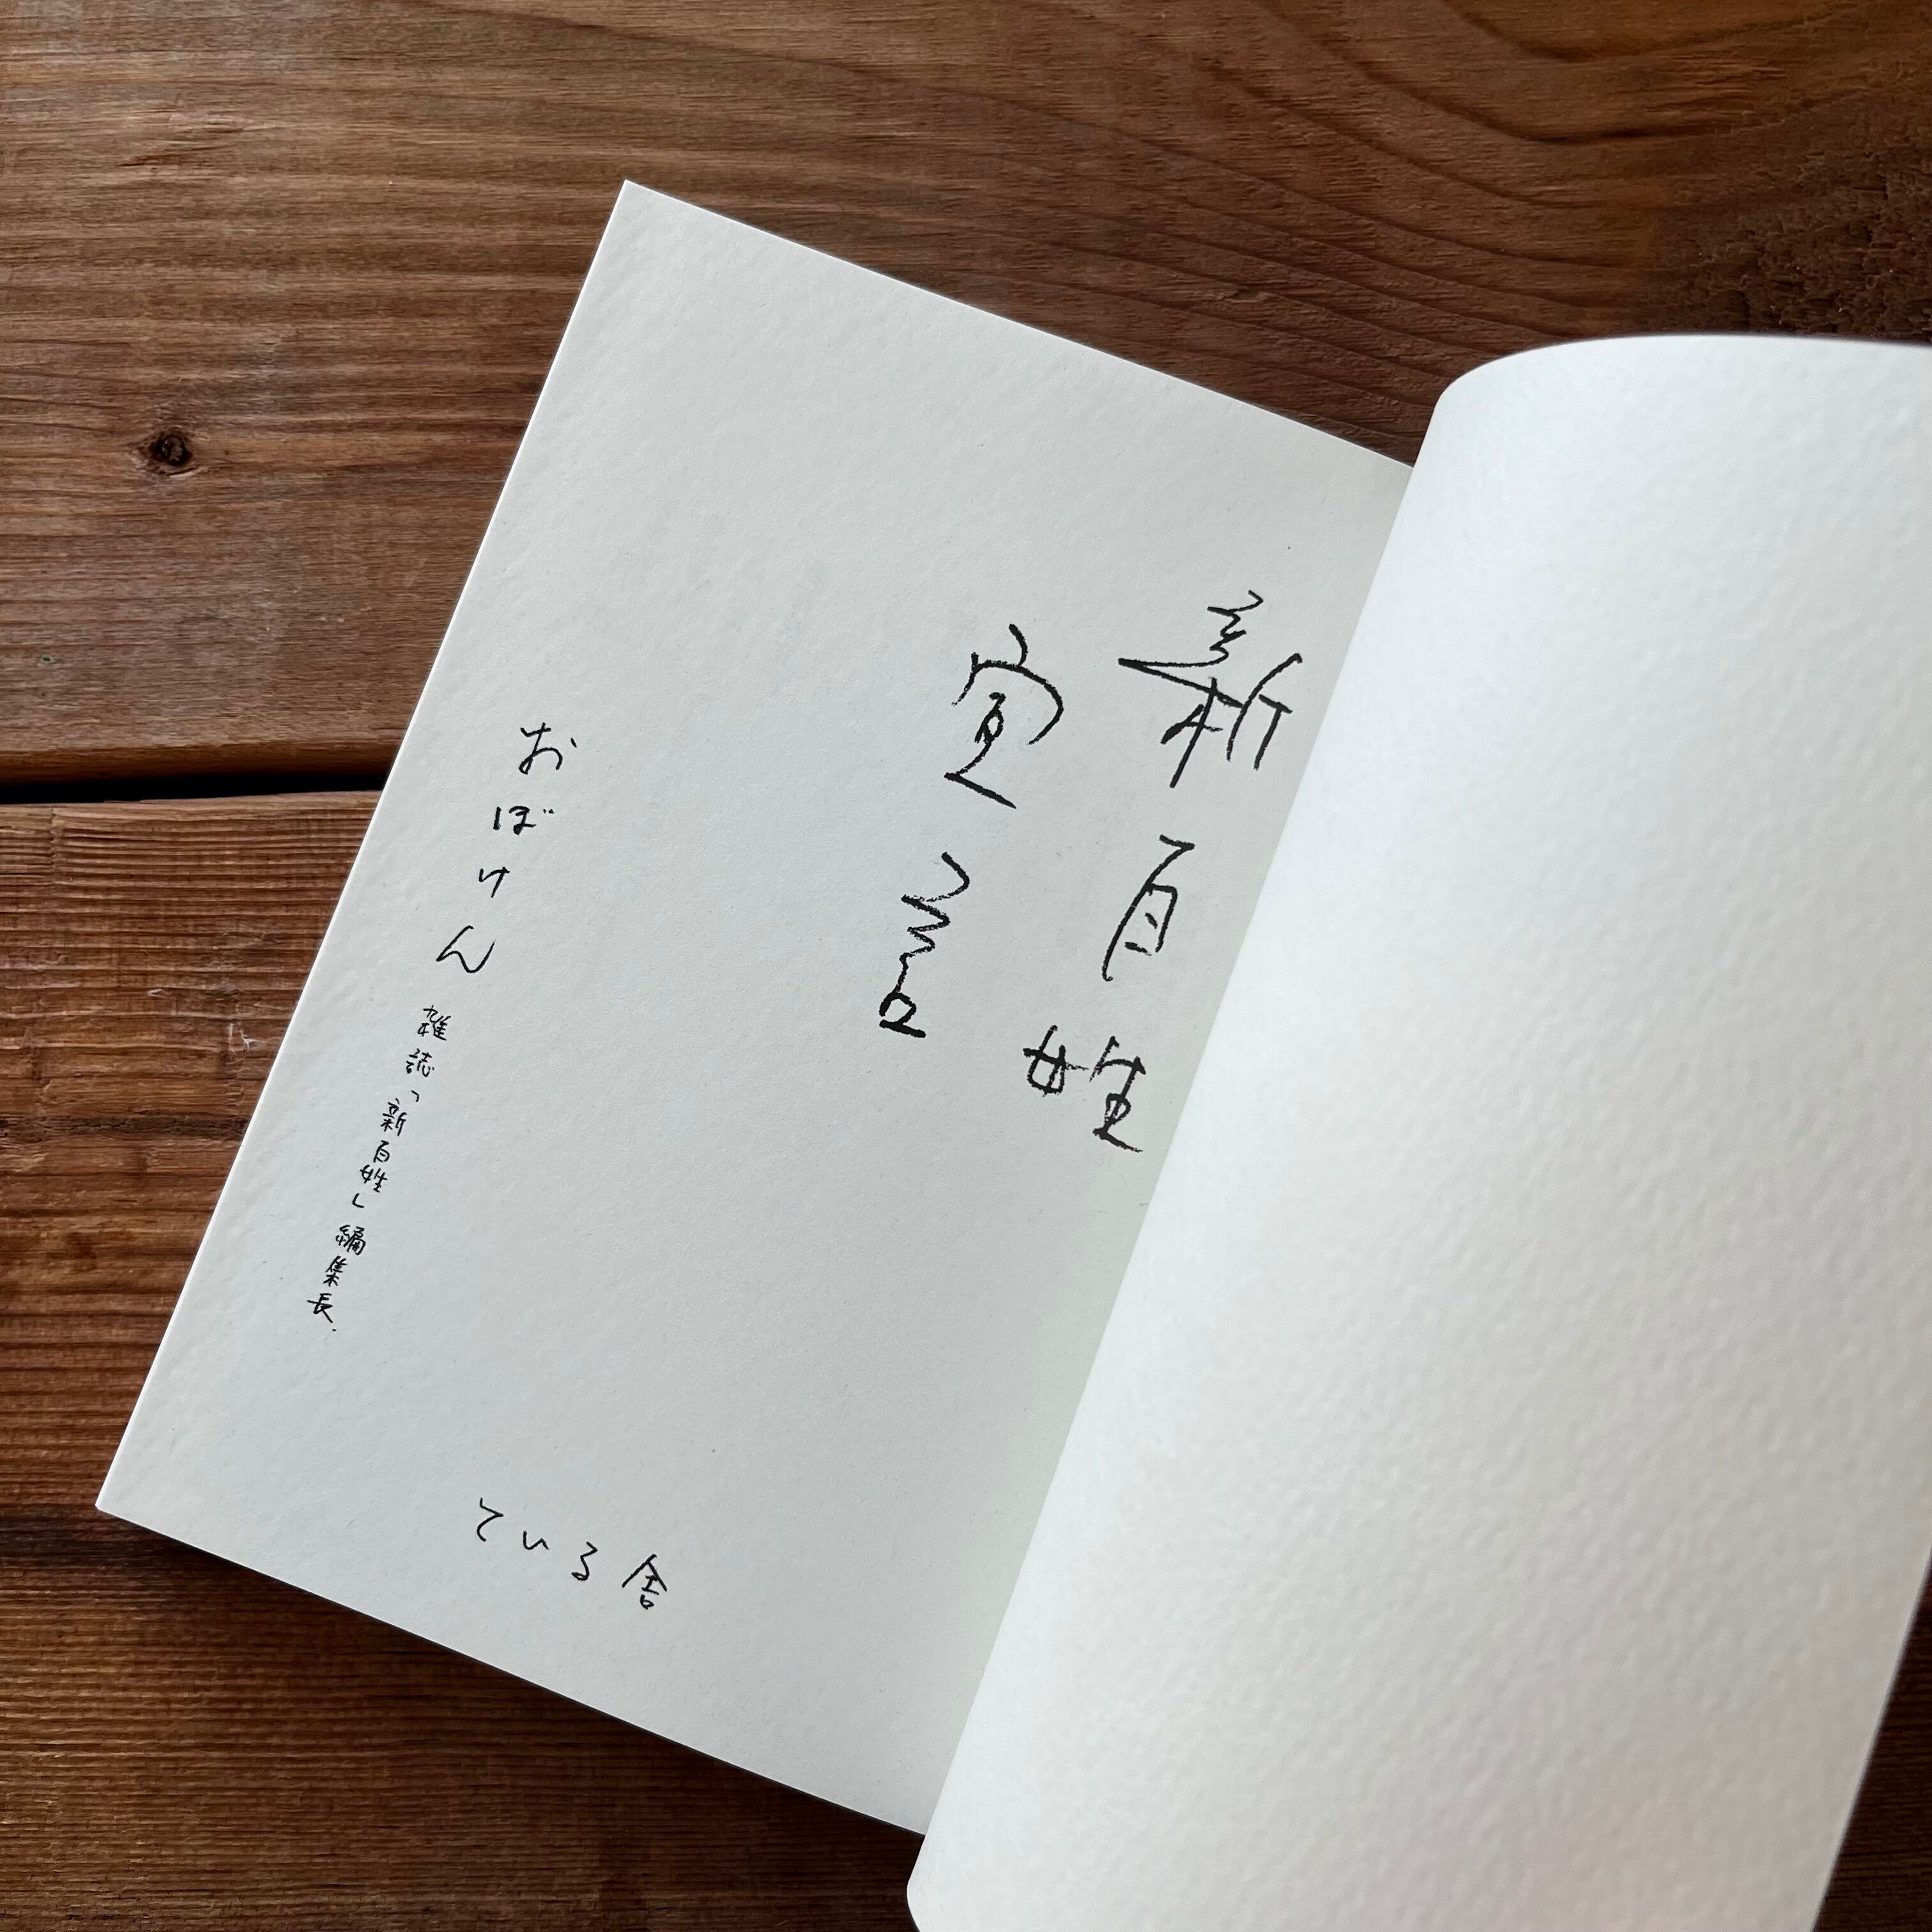 新百姓
宣言
おぼけん 雑誌「新百姓」編集長.
ている舎